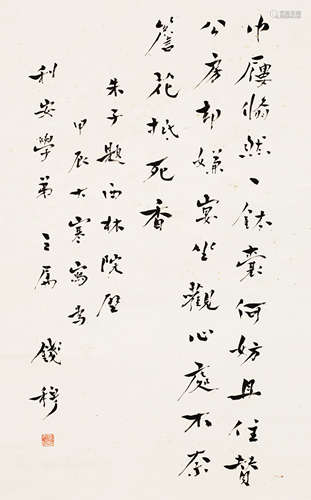 巾屨翛然一鉢囊何妨且住贊
公房却嫌宴坐觀心處不奈
簷花抵死香
朱子題西林院壁
甲辰大寒寫為
利安學弟之属 錢穆